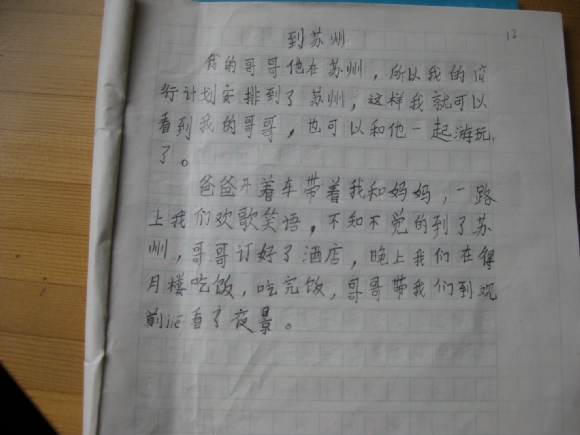 到苏州
12
我的哥哥他在苏州，所以我的
行计划安排到了苏州，这样我就可以
看到我的哥哥，也可以和他一起游玩
了。
爸爸开着车带着我和妈妈，一路
上我们欢歌笑语，不知不觉的到了苏
州，哥哥订好了酒店，晚上我们在得
月楼吃饭，吃完饭，哥哥带我们到观
前jie看了夜景。